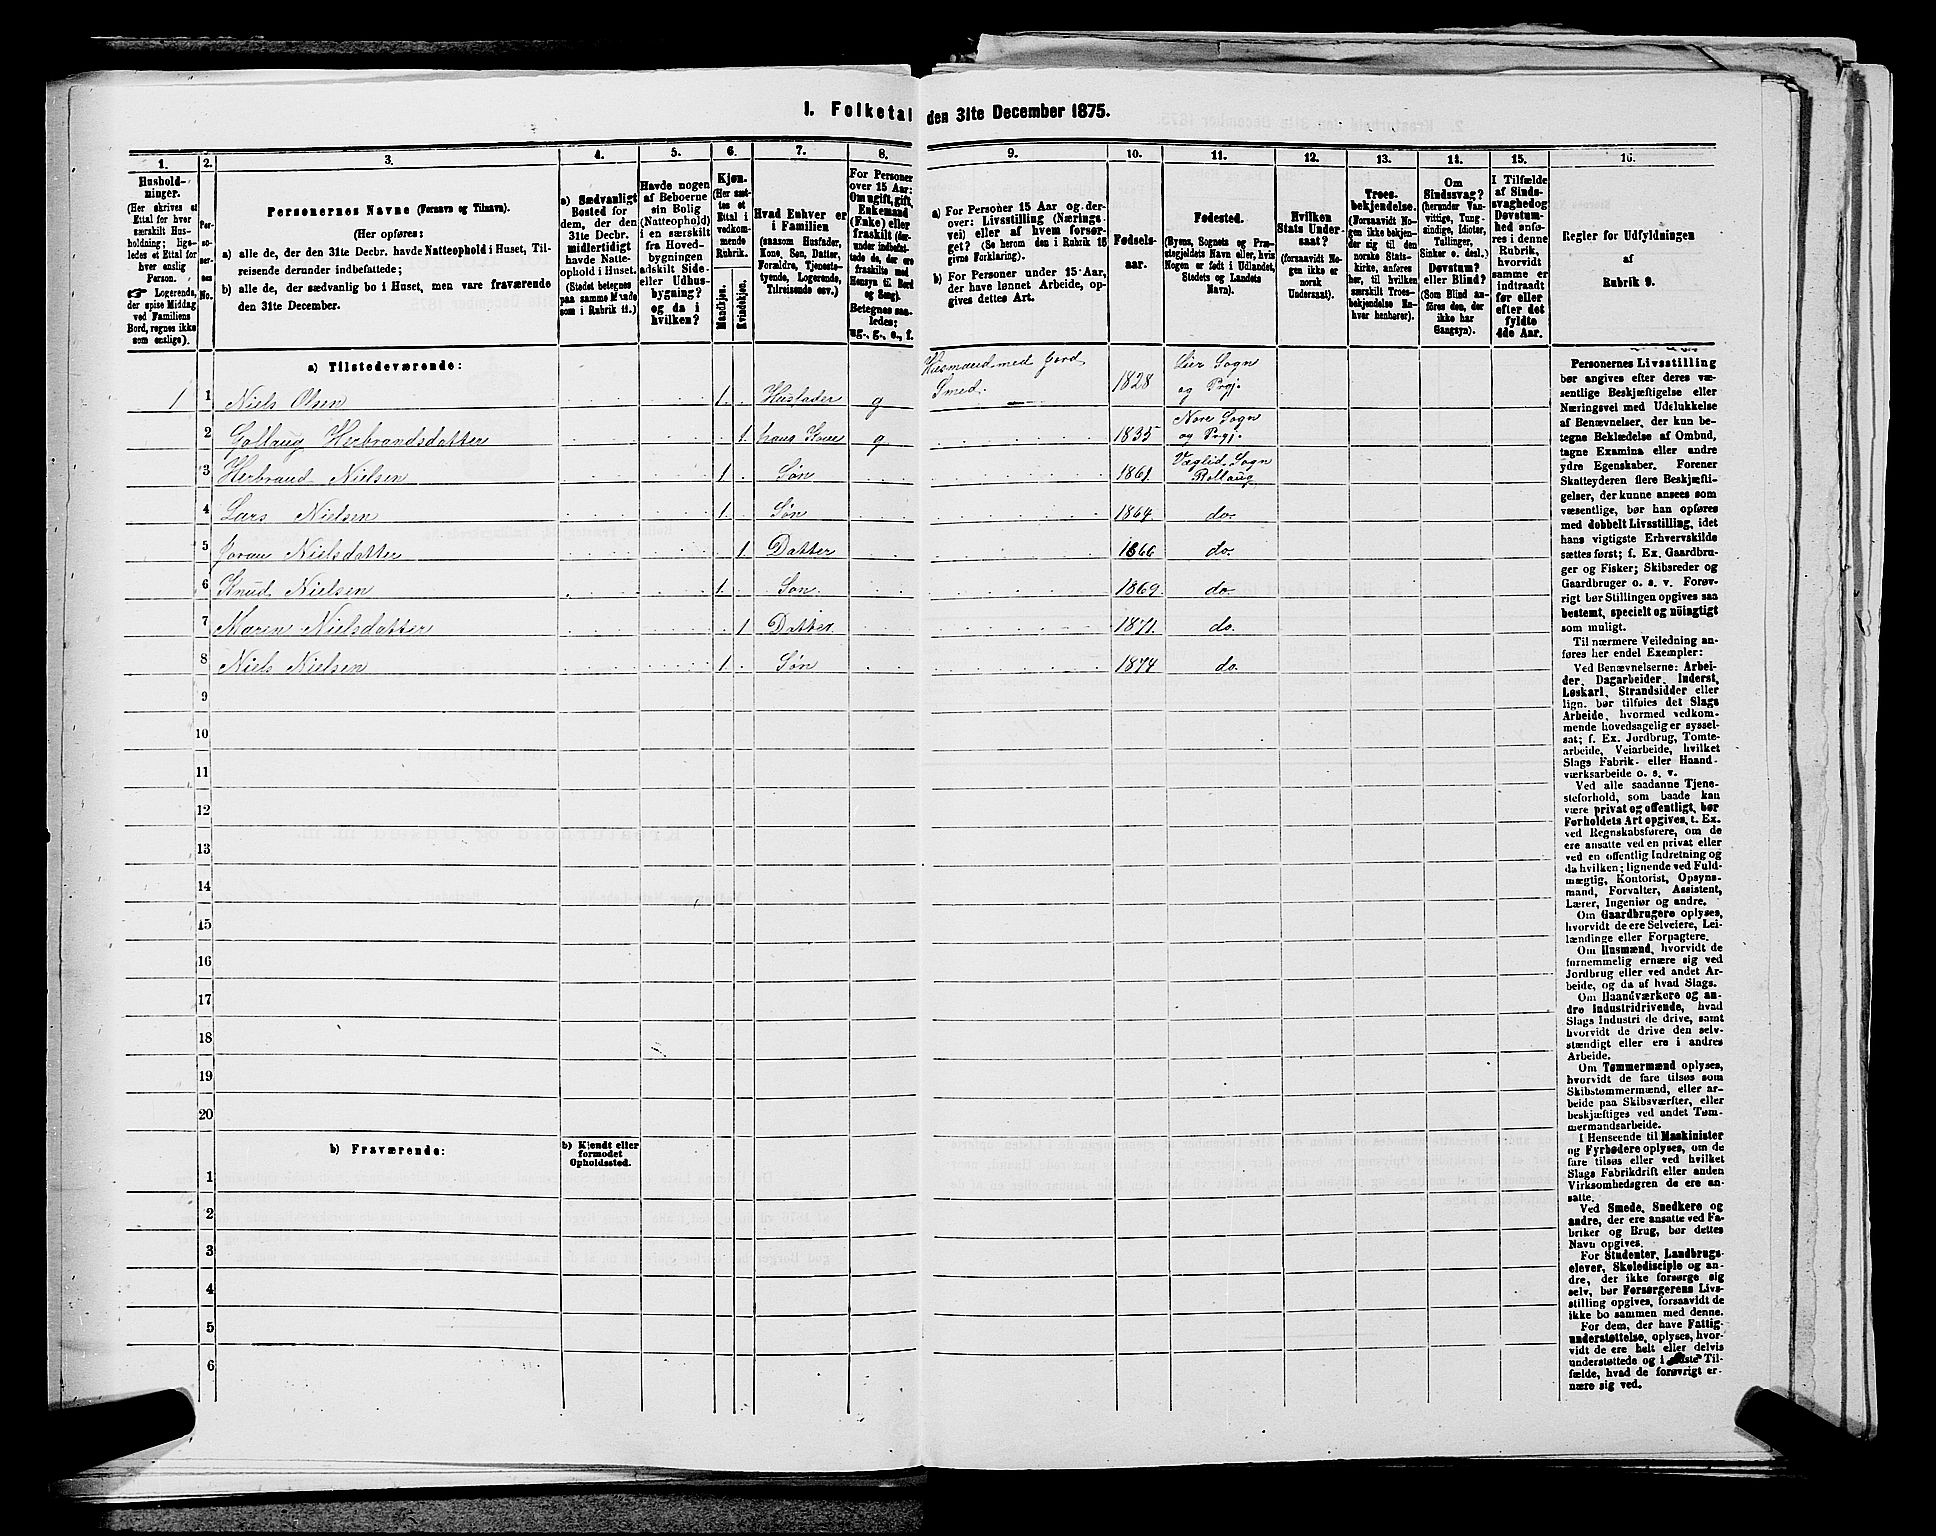 1. Folketal den 31te December 1875.
1. 2. 3. 4. 5. 6. 7. 8. 9. 10. 11. 12. 13. 14. 15. 16.
Husholdninger.
(Her skrives et
Ettal for hver
særskilt Husholdning; ligeledes et Ettal for
hver enslig
Person.
☞ Logerende,
der spise Middag
ved Familiens
Bord, regnes ikke
som enslige).
Personernes No.
Personernes Navne (Fornavn og Tilnavn).
(Her opføres:
a) alle de, der den 31te Decbr. havde Natteophold i Huset, Tilreisende derunder indbefattede;
b) alle de, der sædvanlig bo i Huset, men vare fraværende
den 31te December.
a) Sædvanligt
Bosted for
dem, der den
31te Decbr.
midlertidigt
havde Natteophold i Huset.
(Stedet betegnes
paa samme Maade
som i Rubrik 11.)
Havde nogen
af Beboerne
sin Bolig
(Natteophold)
i en særskilt
fra Hovedbygningen
adskilt Side-
eller Udhusbygning?
og da i
hvilken?
Kjøn.
(Her sættes et
Ettal i
vedkommende
Rubrik.
Mandkjøn.
Kvindekjøn.
Hvad Enhver er
i Familien
(saasom Husfader,
Kone, Søn, Datter,
Forældre, Tjenestetyende, Logerende,
Tilreisende osv.)
For Personer
over 15 Aar:
Om ugift, gift,
Enkemand
(Enke) eller
fraskilt (derunder indbefattede de, der ere
fraskilte med
Hensyn til Bord
og Seng).
Betegnes saaledes:
ug., g., e., f.
a) For Personer 15 Aar og derover: Livsstilling (Næringsvei) eller af hvem forsørget? (Se herom den i Rubrik 16
givne Forklaring).
b) For Personer under 15 Aar,
der have lønnet Arbeide, opgives dettes Art.
Fødselsaar.
Fødested.
(Byens, Sognets og Præstegjeldets Navn eller, hvis
Nogen er født i Udlandet,
Stedets og Landets
Navn).
Hvilken
Stats Undersaat?
(forsaavidt Nogen ikke er
norsk
Undersaat).
Troesbekjendelse.
(Forsaavidt Nogen ikke bekjender sig til den
norske Statskirke, anføres
her, til hvilken
særskilt Troesbekjendelse Enhver henhører).
Om
Sindssvag?
(herunder Vanvittige, Tungsindige, Idioter,
Tullinger,
Sinker o. desl.)
Døvstum?
eller Blind?
(Som Blind anføres den, der
ikke har
Gangsyn).
I Tilfælde
af Sindssvaghed og
Døvstumhed anføres i denne
Rubrik,
hvorvidt
samme er
indtraadt
før eller
efter det
fyldte
4de Aar.
Regler for Udfyldningen
af
Rubrik 9.
a) Tilstedeværende:
1 1 Niels Olsen 1. Husfader g Husmand med Jord Smed. 1828 Lier Sogn og Prgj.
2 Gollaug Herbrandsdatter 1. hans Kone g 1835 Nore Sogn og Prgj.
3 Herbrand Nielsen 1. Søn 1861. Væglid Sogn Rollaug
4 Lars Nielsen 1. Søn 1864. do.
5 Joran Nielsdatter 1 Datter 1866 do.
6 Knud Nielsen 1. Søn 1869. do.
7 Maren Nielsdatter 1 Datter. 1871. do.
8 Niels Nielsen 1. Søn 1874 do.
9
10
11
12
13
14
15
16
17
18
19
20
b) Fraværende:
b) Kjendt eller
formodet
Opholdssted.
1
2
3
4
5
6
Personernes Livsstilling
bør angives efter deres væsentlige Beskjæftigelse eller
Næringsvei med Udelukkelse
af Benævnelser, der kun betegne Beklædelse af Ombud,
tagne Examina eller andre
ydre Egenskaber. Forener
Skatteyderen flere Beskjæftigelser, der kunne ansees som
væsentlige, bør han opføres
med dobbelt Livsstilling, idet
hans vigtigste Erhvervskilde
sættes først; f. Ex. Gaardbruger og Fisker; Skibsreder og
Gaardbruger o. s. v. Forøvrigt bør Stillingen opgives saa
bestemt, specielt og nöiagtigt
som muligt.
Til nærmere Veiledning anføres her endel Exempler:
Ved Benævnelserne: Arbeider, Dagarbeider, Inderst,
Løskarl, Strandsidder eller
lign. bør tilføies det Slags
Arbeide, hvormed vedkommende hovedsagelig er sysselsat; f. Ex. Jordbrug, Tomtearbeide, Veiarbeide, hvilket
Slags Fabrik- eller Haandværksarbeide o. s. v.
Ved alle saadanne Tjenesteforhold, som baade kan
være privat og offentligt, bør
Forholdets Art opgives, t. Ex.
ved Regnskabsførere, om de
ere ansatte ved en privat eller
ved en offentlig Indretning og
da hvilken; lignende ved Fuldmægtig, Kontorist, Opsynsmand, Forvalter, Assistent,
Lærer, Ingeniør og andre.
Om Gaardbrugere oplyses,
hvorvidt de ere Selveiere, Leilændinge eller Forpagtere.
Om Husmænd, hvorvidt de
fornemmelig ernære sig ved
Jordbrug eller ved andet Arbeide, og da af hvad Slags.
Om Haandværkere og andre Industridrivende, hvad
Slags Industri de drive, samt
hvorvidt de drive den selvstændigt eller ere i andres
Arbeide.
Om Tømmermænd oplyses,
hvorvidt de fare tilsøs som
Skibstømmermænd, eller arbeide paa Skibsværfter, eller
beskjæftiges ved andet Tømmermandsarbeide.
I Henseende til Maskinister
og Fyrbødere oplyses, om de
fare tilsøs eller ved hvilket
Slags Fabrikdrift eller anden
Virksomhedsgren de ere ansatte.
Ved Smede, Snedkere og
andre, der ere ansatte ved Fabriker og Brug, bør dettes
Navn opgives.
For Studenter, Landbrugselever, Skoledisciple og andre, der ikke forsørge sig
selv, bør Forsørgerens Livsstilling opgives, forsaavidt de
ikke bo sammen med denne.
For dem, der have Fattigunderstøttelse, oplyses, hvorvidt de ere helt eller delvis
understøttede og i sidste Tilfælde, hvad de forøvrigt ernære sig ved.